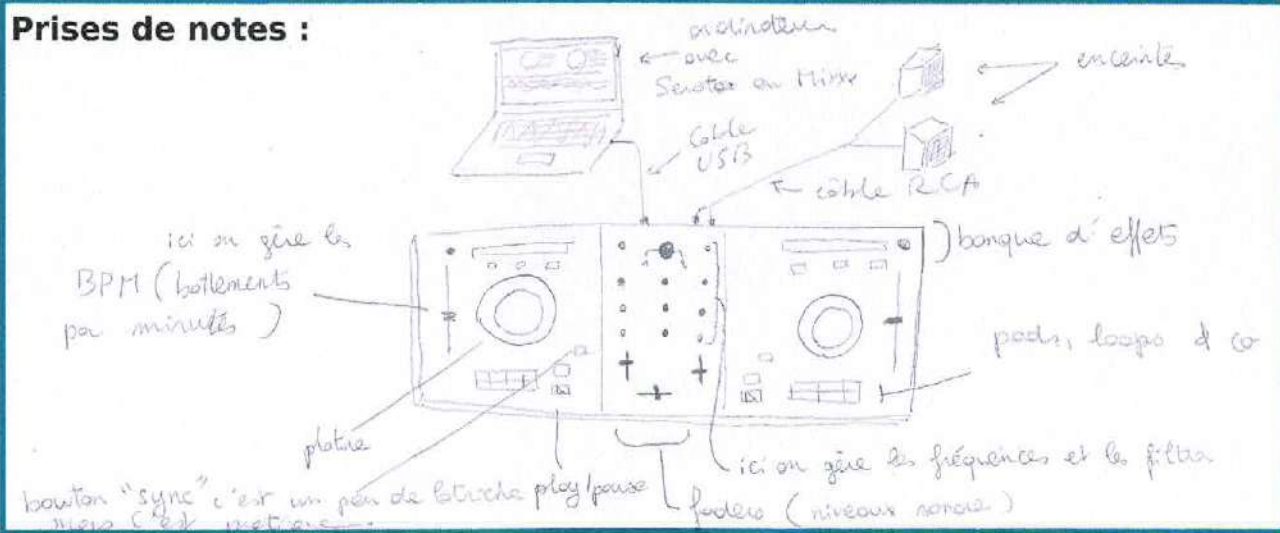 Prises de notes :
ordinateur
avec
Serato ou Mixxx
enceintes
câble
USB
câble RCA
banque d'effets
ici on gère les
BPM (battements
par minutes)
pads, loops & co
platine
ici on gère les fréquences et les filtres
bouton "sync" c'est un peu de la triche
mais c'est pratique...
play/pause
faders (niveaux sonore)